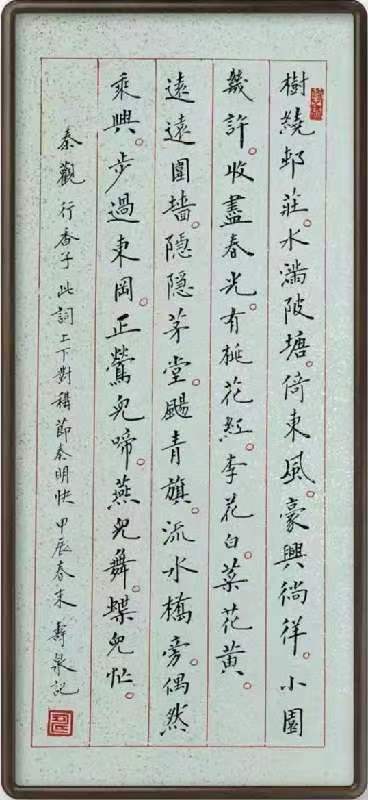 樹繞邨莊。水滿陂塘。倚東風。豪興徜徉。小園
幾許。收盡春光。有桃花紅。李花白。菜花黄。
遠遠圍墻。隱隱茅堂。颺青旗。流水橋旁。偶然
乘興。步過東岡。正鶯兒啼。燕兒舞。蝶兒忙。
秦觀 行香子 此詞上下對稱 節奏明快 甲辰春末 壽泉記